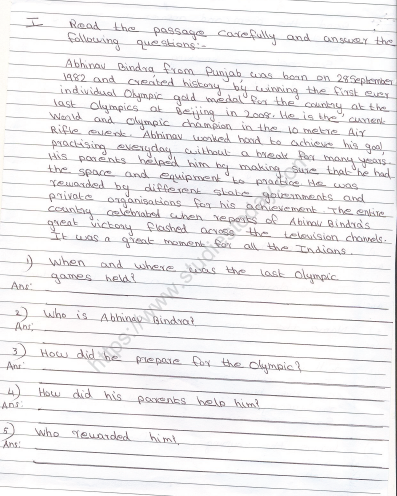 I Read the passage carefully and answer the
following questions:-
Abhinav Bindra from Punjab was born on 28 September
1982 and created history by winning the first ever
individual Olympic gold medal for the country at the
last Olympics at Beijing in 2008. He is the current
World and Olympic champion in the 10 metre Air
Rifle event. Abhinav worked hard to achieve his goal
practising everyday without a break for many years.
His parents helped him by making sure that he had
the space and equipment to practice. He was
rewarded by different state governments and
private organisations for his achievement. The entire
country celebrated when reports of Abinav Bindra's
great victory flashed across the television channels.
It was a great moment for all the Indians.
1) When and where was the last Olympic
games held?
Ans:
2) Who is Abhinav Bindra?
Ans:
3) How did he prepare for the Olympic?
Ans:
4) How did his parents help him?
Ans:
5) Who rewarded him?
Ans: